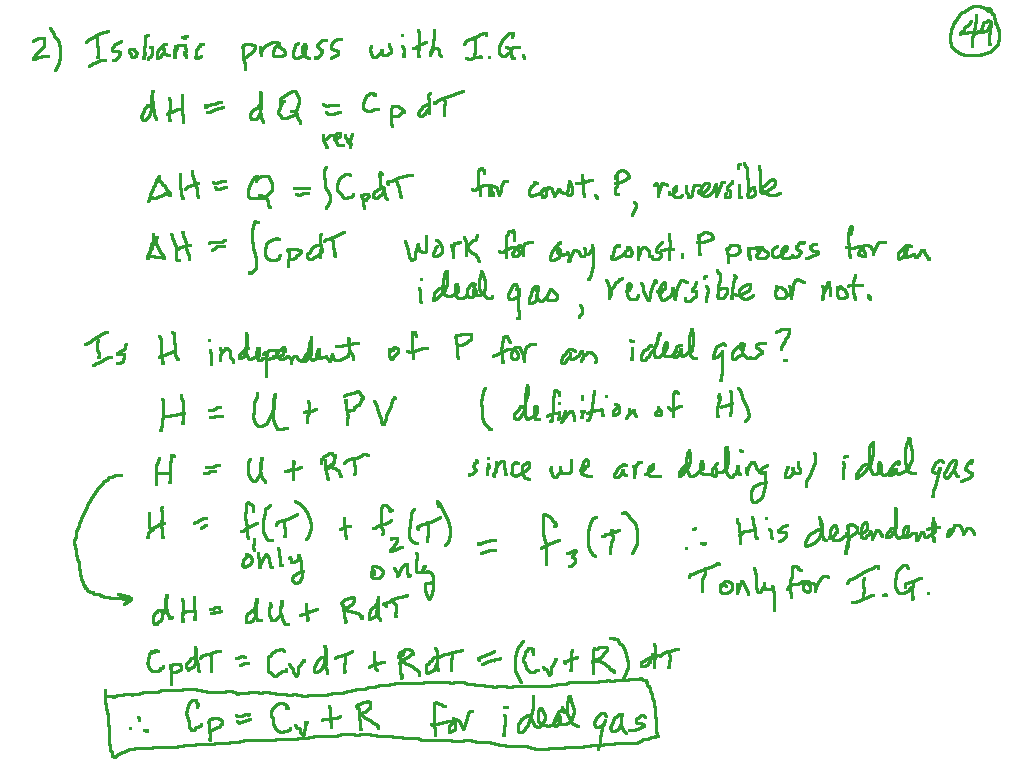 49
2) Isobaric process with I.G.
dH = dQrev = CpdT
ΔH = Q = ∫CpdT for const. P, reversible
ΔH = ∫CpdT work for any const. P process for an
ideal gas, reversible or not.
Is H independent of P for an ideal gas?
H = U + PV (definition of H)
H = U + RT since we are dealing w/ ideal gas
H = f1(T) + f2(T) = f3(T) ∴ H is dependent on
only only T only for I.G.
dH = dU + RdT
CpdT = CvdT + RdT = (Cv + R)dT
∴ Cp = Cv + R for ideal gas